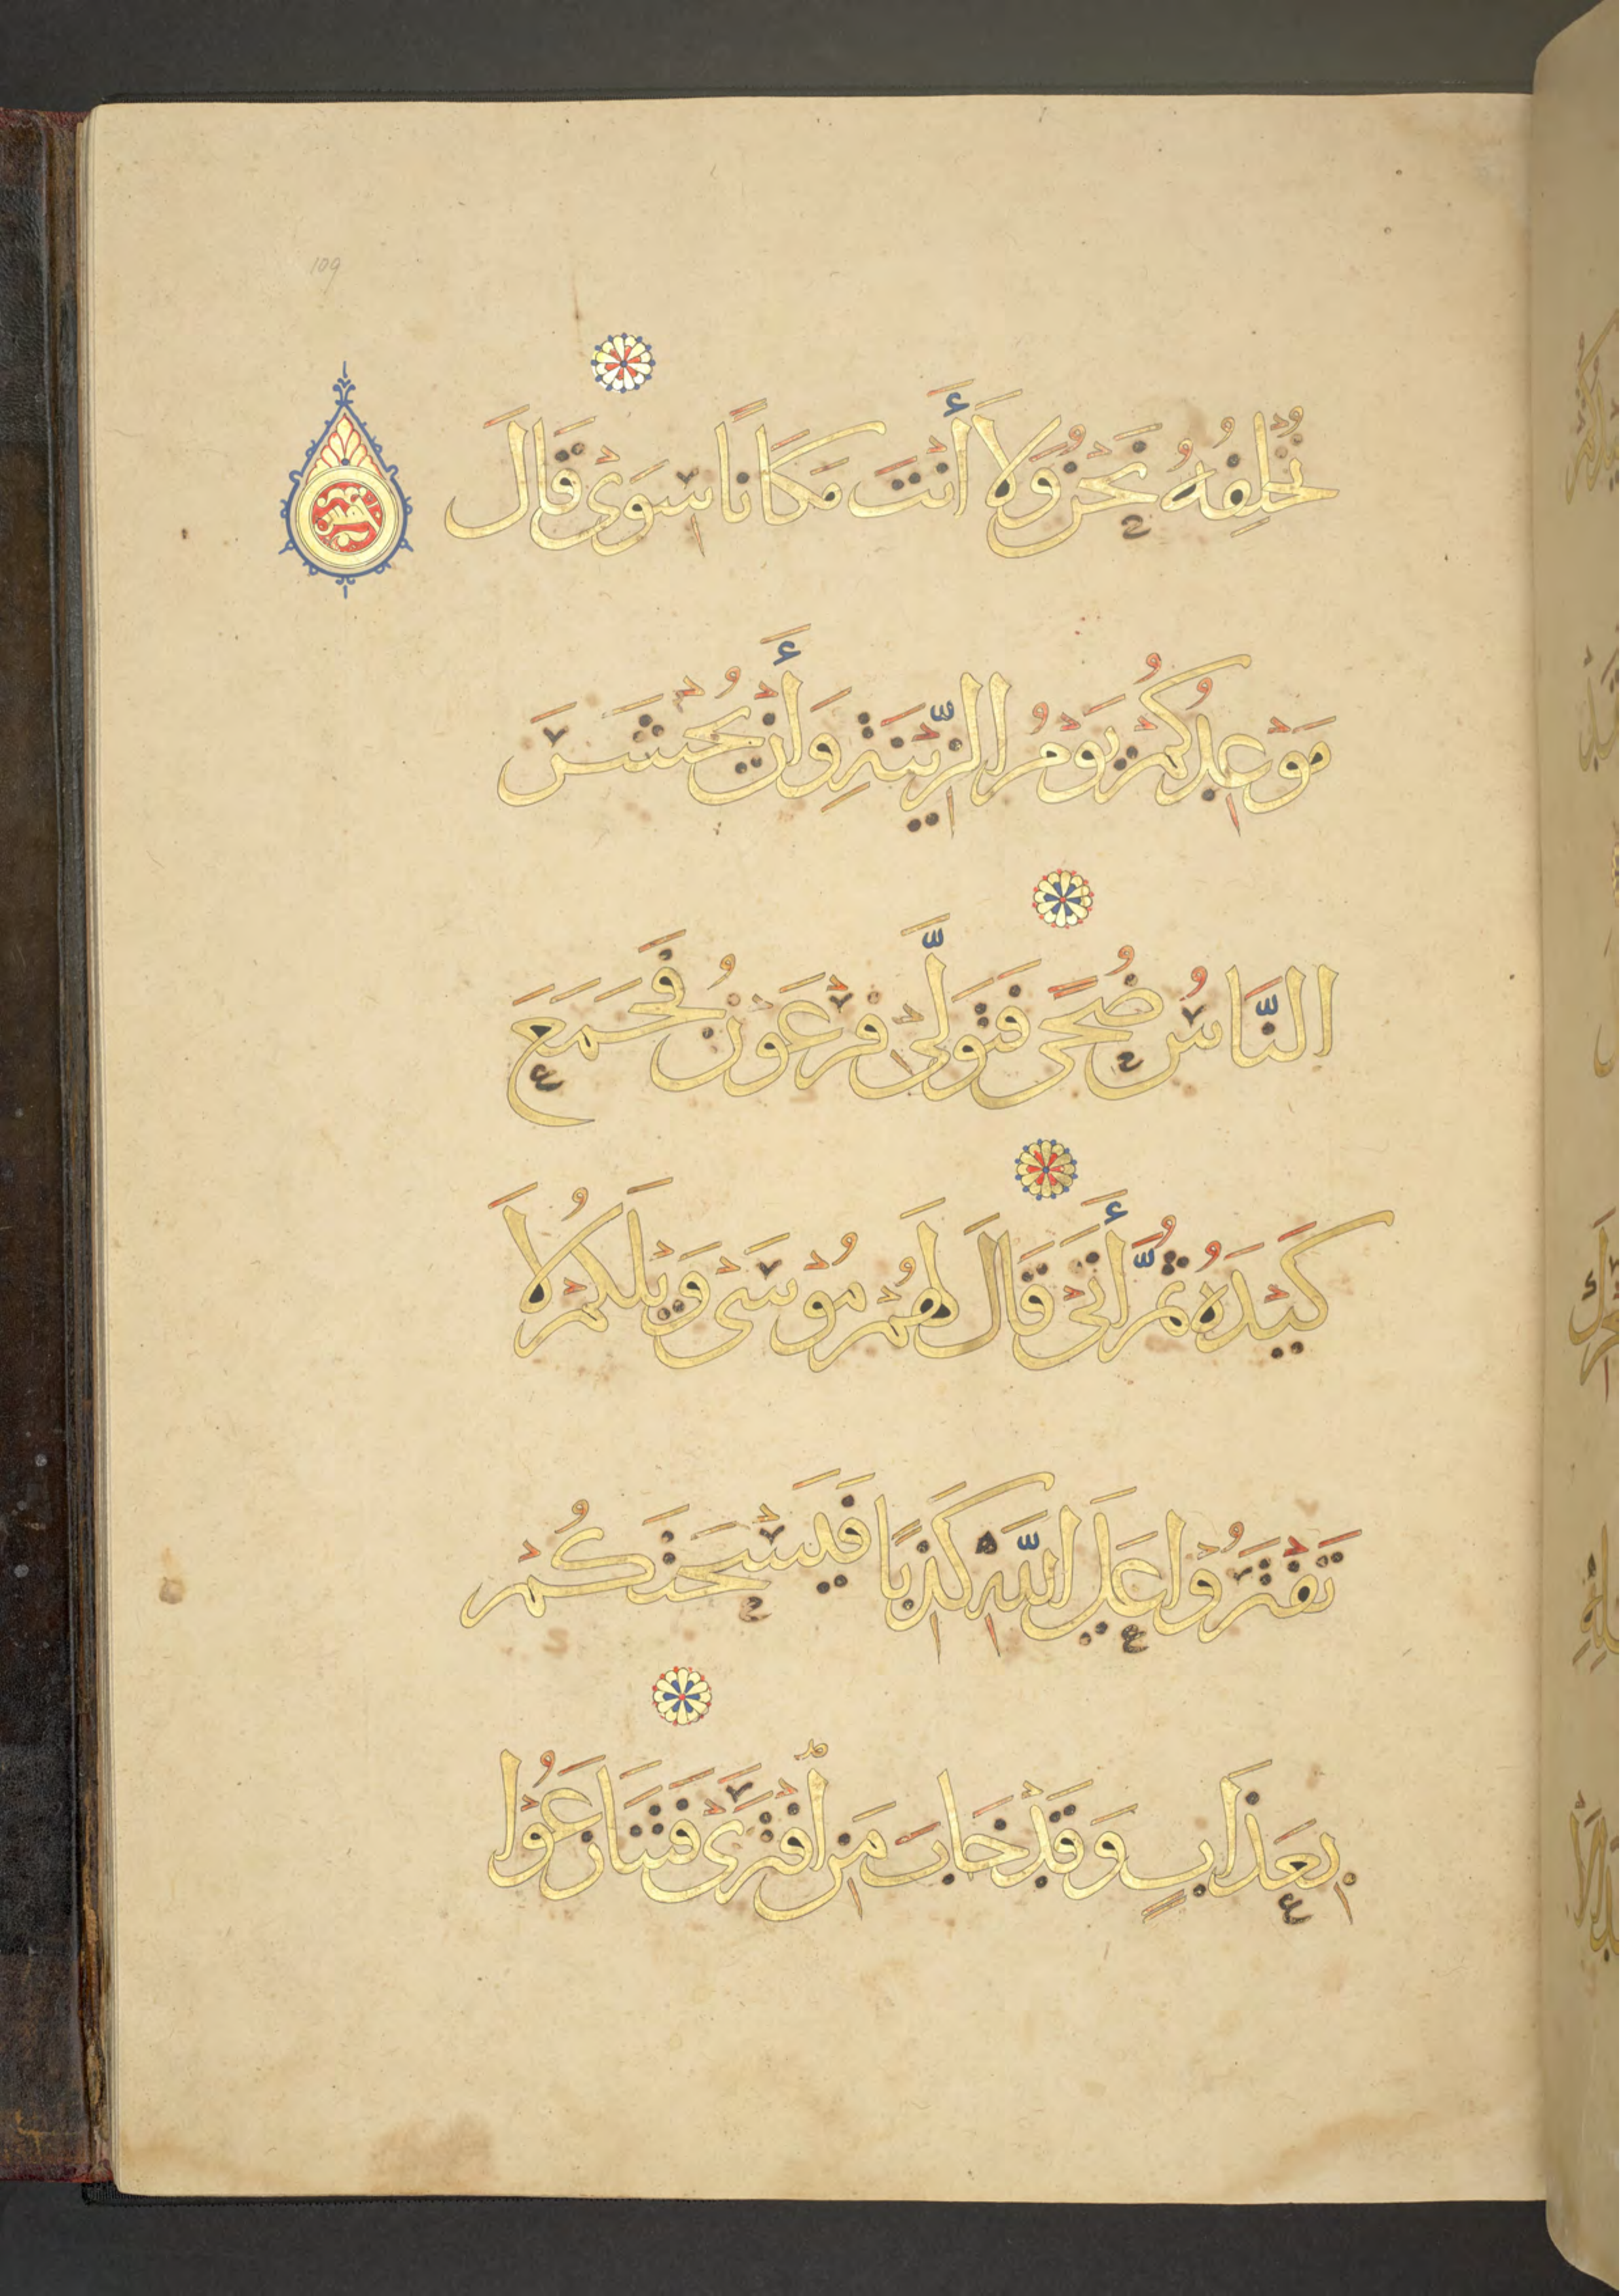 109
نُخْلِفُهُ نَحْنُ وَلَا أَنْتَ مَكَانًا سِوَى قَالَ
مَوْعِدُكُمْ يَوْمُ الزِّيْنَةِ وَأَنْ يُحْشَرَ
النَّاسُ ضُحًى فَتَوَلَّى فِرْعَوْنُ فَجَمَعَ
كَيْدَهُ ثُمَّ أَتَى قَالَ لَهُمْ مُوْسَى وَيْلَكُمْ لَا
تَفْتَرُوْا عَلَى اللَّهِ كَذِبًا فَيَسْحَتَكُمْ
بِعَذَابٍ وَقَدْ خَابَ مَنِ افْتَرَى فَتَنَازَعُوْا